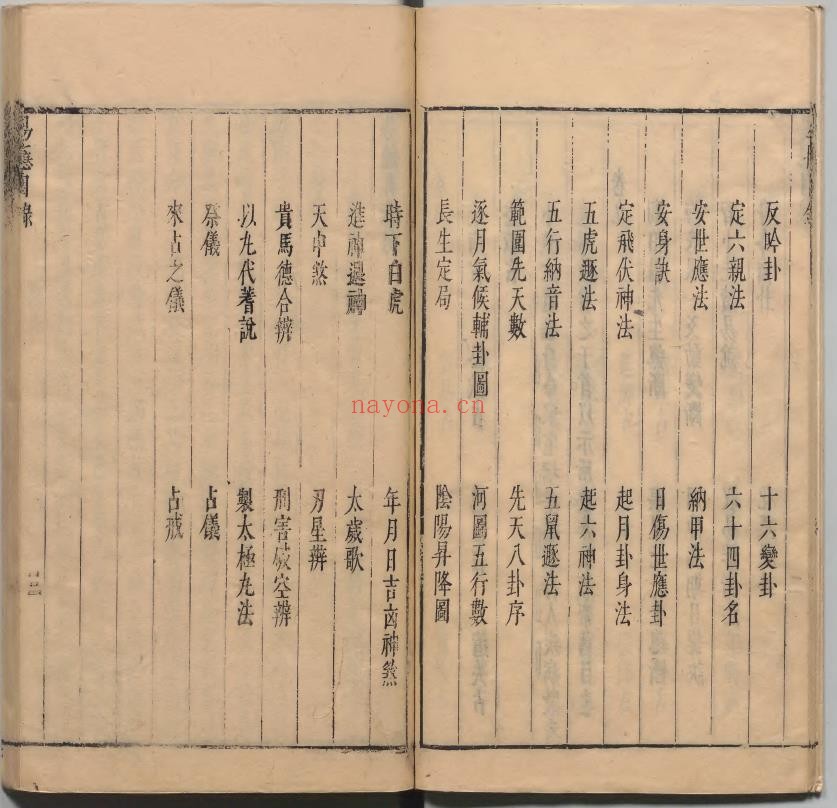 反吟卦 十六變卦
定六親法 六十四卦名
安世應法 納甲法
安身訣 日傷世應卦
定飛伏神法 起月卦身法
五虎遯法 起六神法
五行納音法 五鼠遯法
範圍先天數 先天八卦序
逐月氣候輔卦圖 河圖五行數
長生定局 陰陽昇降圖
時下白虎 年月日吉凶神煞
進神退神 太歲歌
天中煞 刃星辨
貴馬德合辨 刑害空辨
以丸代蓍說 製太極丸法
儀 占儀
來占之儀 占戒
nayona.cn